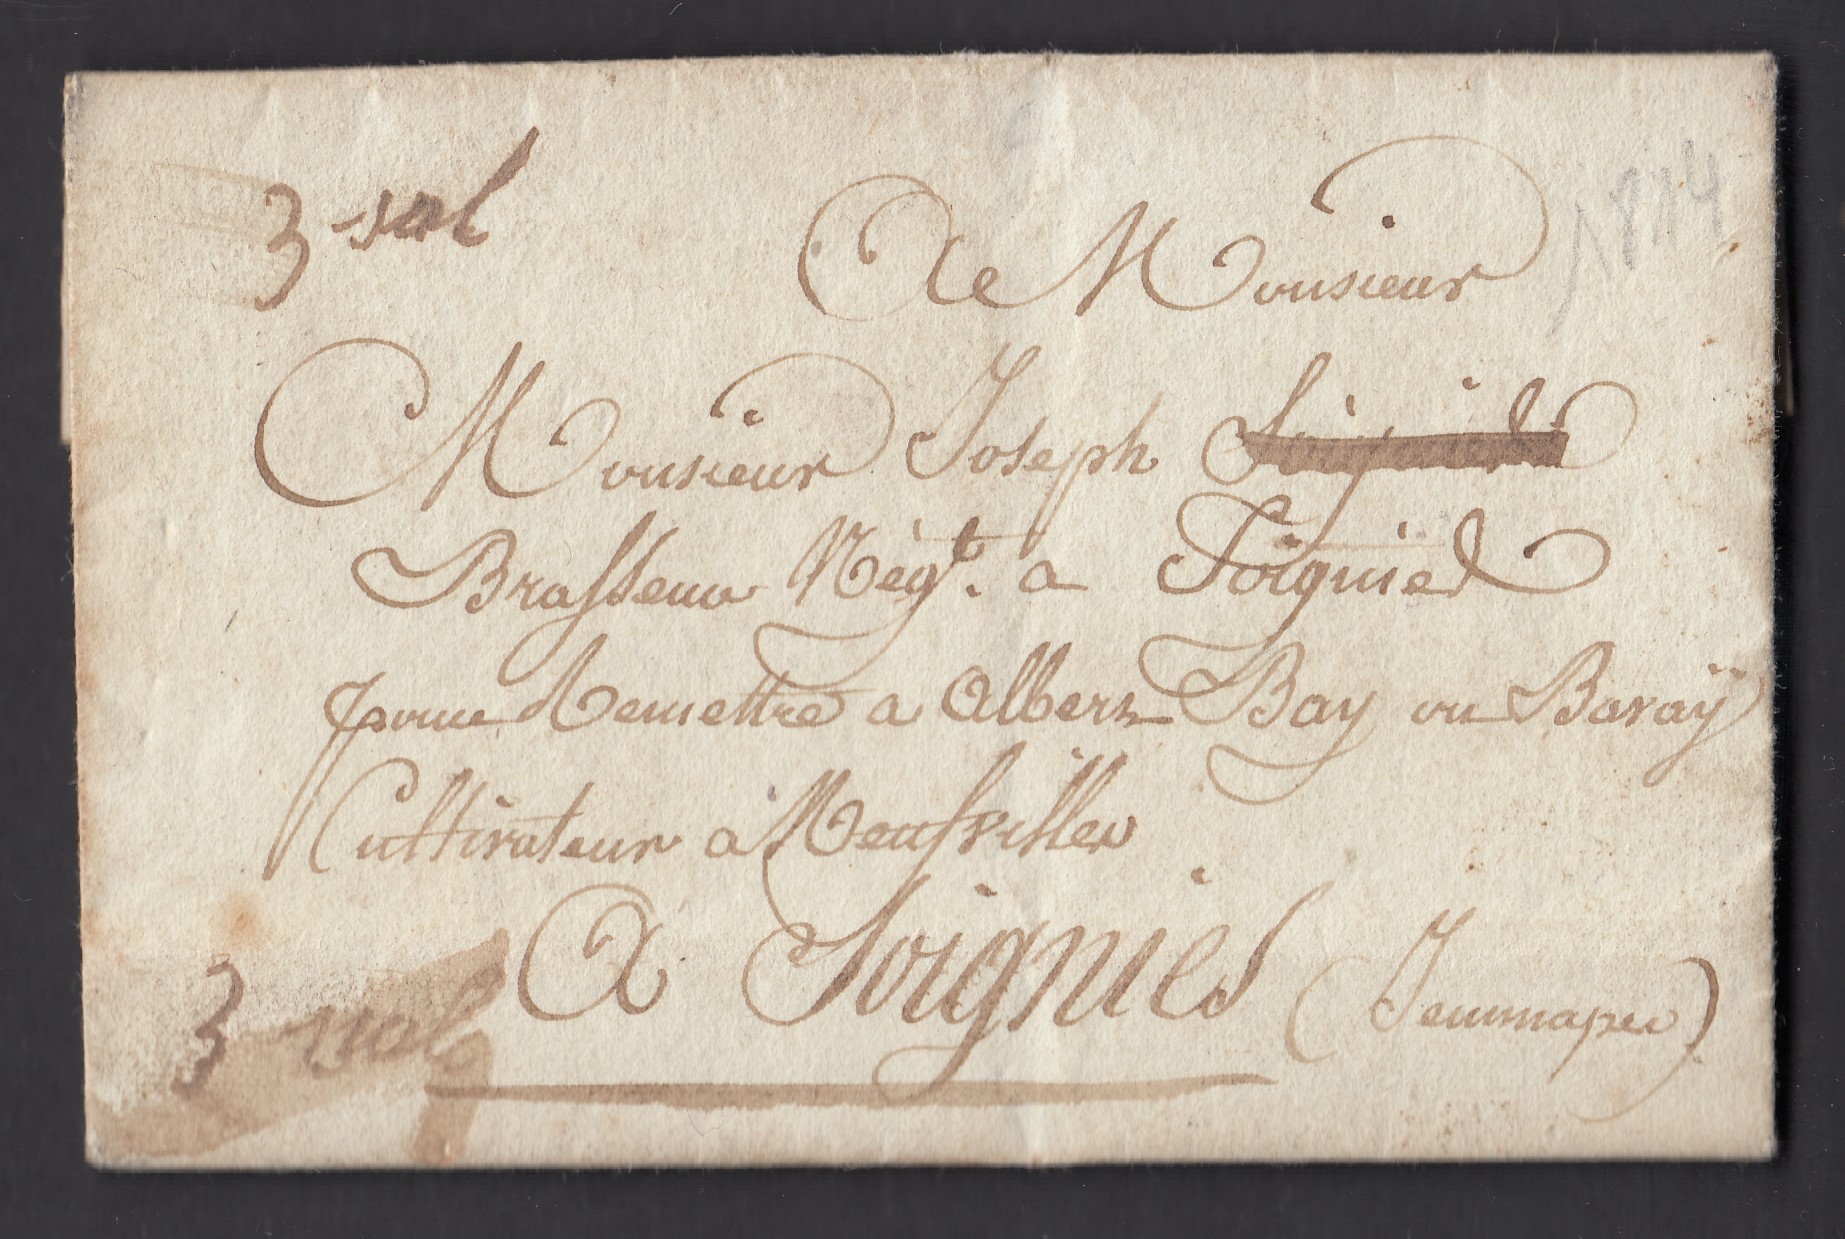 3 sol
1814
A Monsieur
Monsieur Joseph
Brasseur Négt. a Soignies
pour Remettre a Albert Bay ou Bavaÿ
Cultivateur a Neufville
A Soignies (Jemmapes)
3 sol